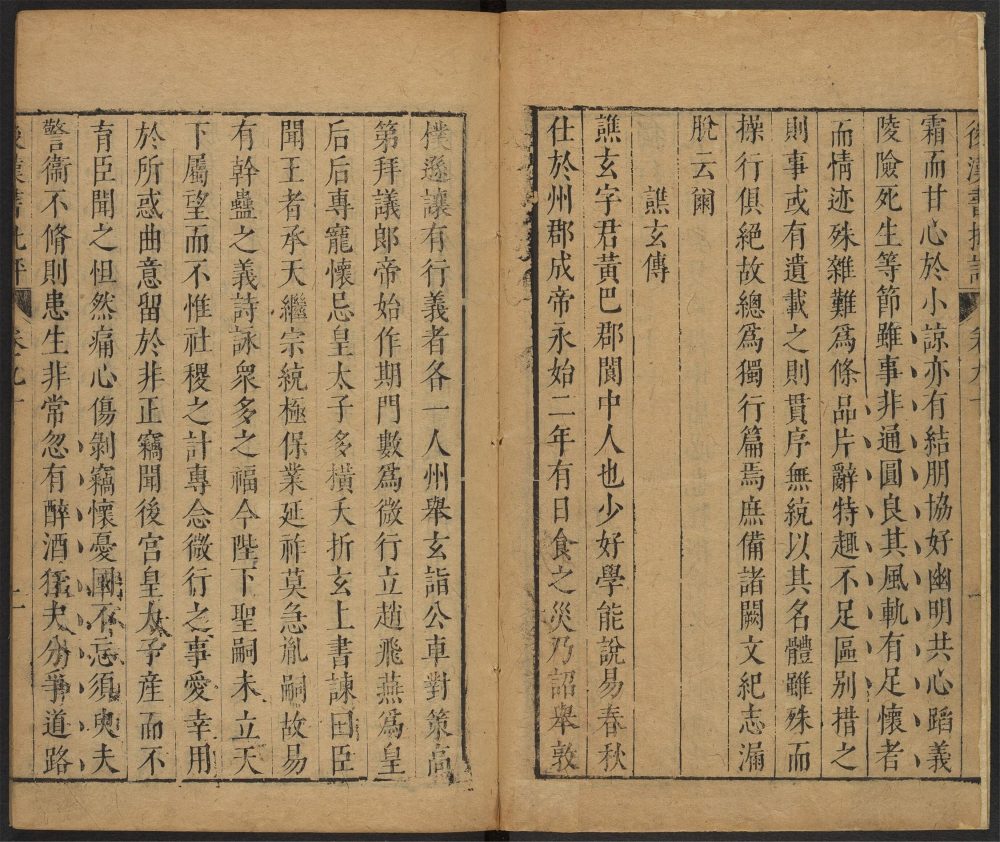 霜而甘心於小諒亦有結朋協好幽明共心蹈義
陵險死生等節雖事非通圓良其風軌有足懷者
而情迹殊雜難爲條品片辭特趣不足區別措之
則事或有遺載之則貫序無統以其名體雖殊而
操行俱絕故總爲獨行篇焉庶備諸闕文紀志漏
脫云爾
譙玄傳
譙玄字君黃巴郡閬中人也少好學能說易春秋
仕於州郡成帝永始二年有日食之災乃詔舉敦
樸遜讓有行義者各一人州舉玄詣公車對策高
第拜議郎帝始作期門數爲微行立趙飛燕爲皇
后后專寵懷忌皇太子多橫夭折玄上書諫曰臣
聞王者承天繼宗統極保業延祚莫急胤嗣故易
有幹蠱之義詩詠衆多之福今陛下聖嗣未立天
下屬望而不惟社稷之計專念微行之事愛幸用
於所惑曲意留於非正竊聞後宮皇太子產而不
育臣聞之怛然痛心傷剝竊懷憂國不忘須臾夫
警衞不脩則患生非常忽有醉酒狂夫分爭道路